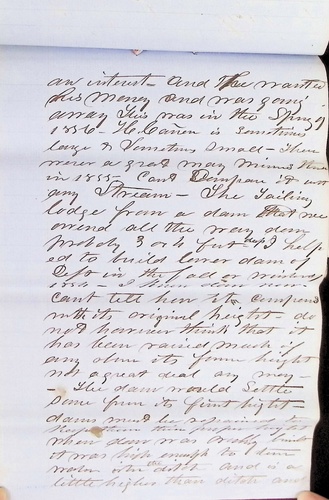 an interest - and he wanted
his money and was going
away This was in the Spring of
1856 - H. Cañon is Sometimes
large & Sometimes small - There
never a great many miners there
in 1855 - Cant Compare it with
any Stream - The Tailings
lodge from a dam that we
all the way down
probly 3 or 4 feet deep help
ed to build lower dam of
Deft in the fall or winter
1854 -
Cant tell how it compares
with its original height - do
not however think that it
has been raised much if
any above its former height
not a great deal any way -
- The dam would Settle
some from its first hight -
dams must be
when dam was built
it was high enough to turn
water into the ditch and is a
little higher than ditch and